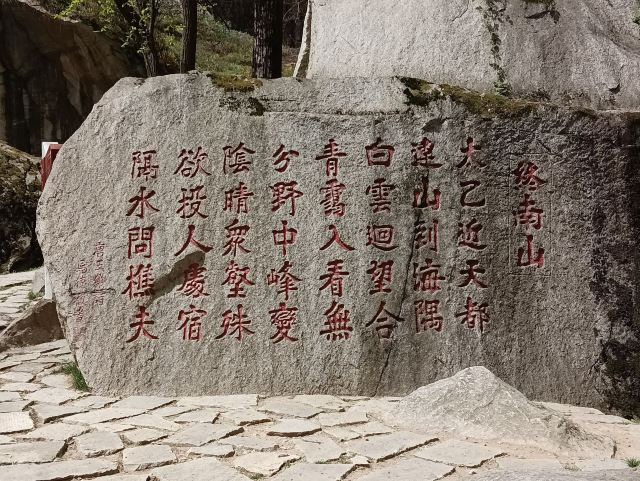 终南山
太乙近天都
連山到海隅
白雲迴望合
青靄入看無
分野中峰變
陰晴衆壑殊
欲投人處宿
隔水問樵夫